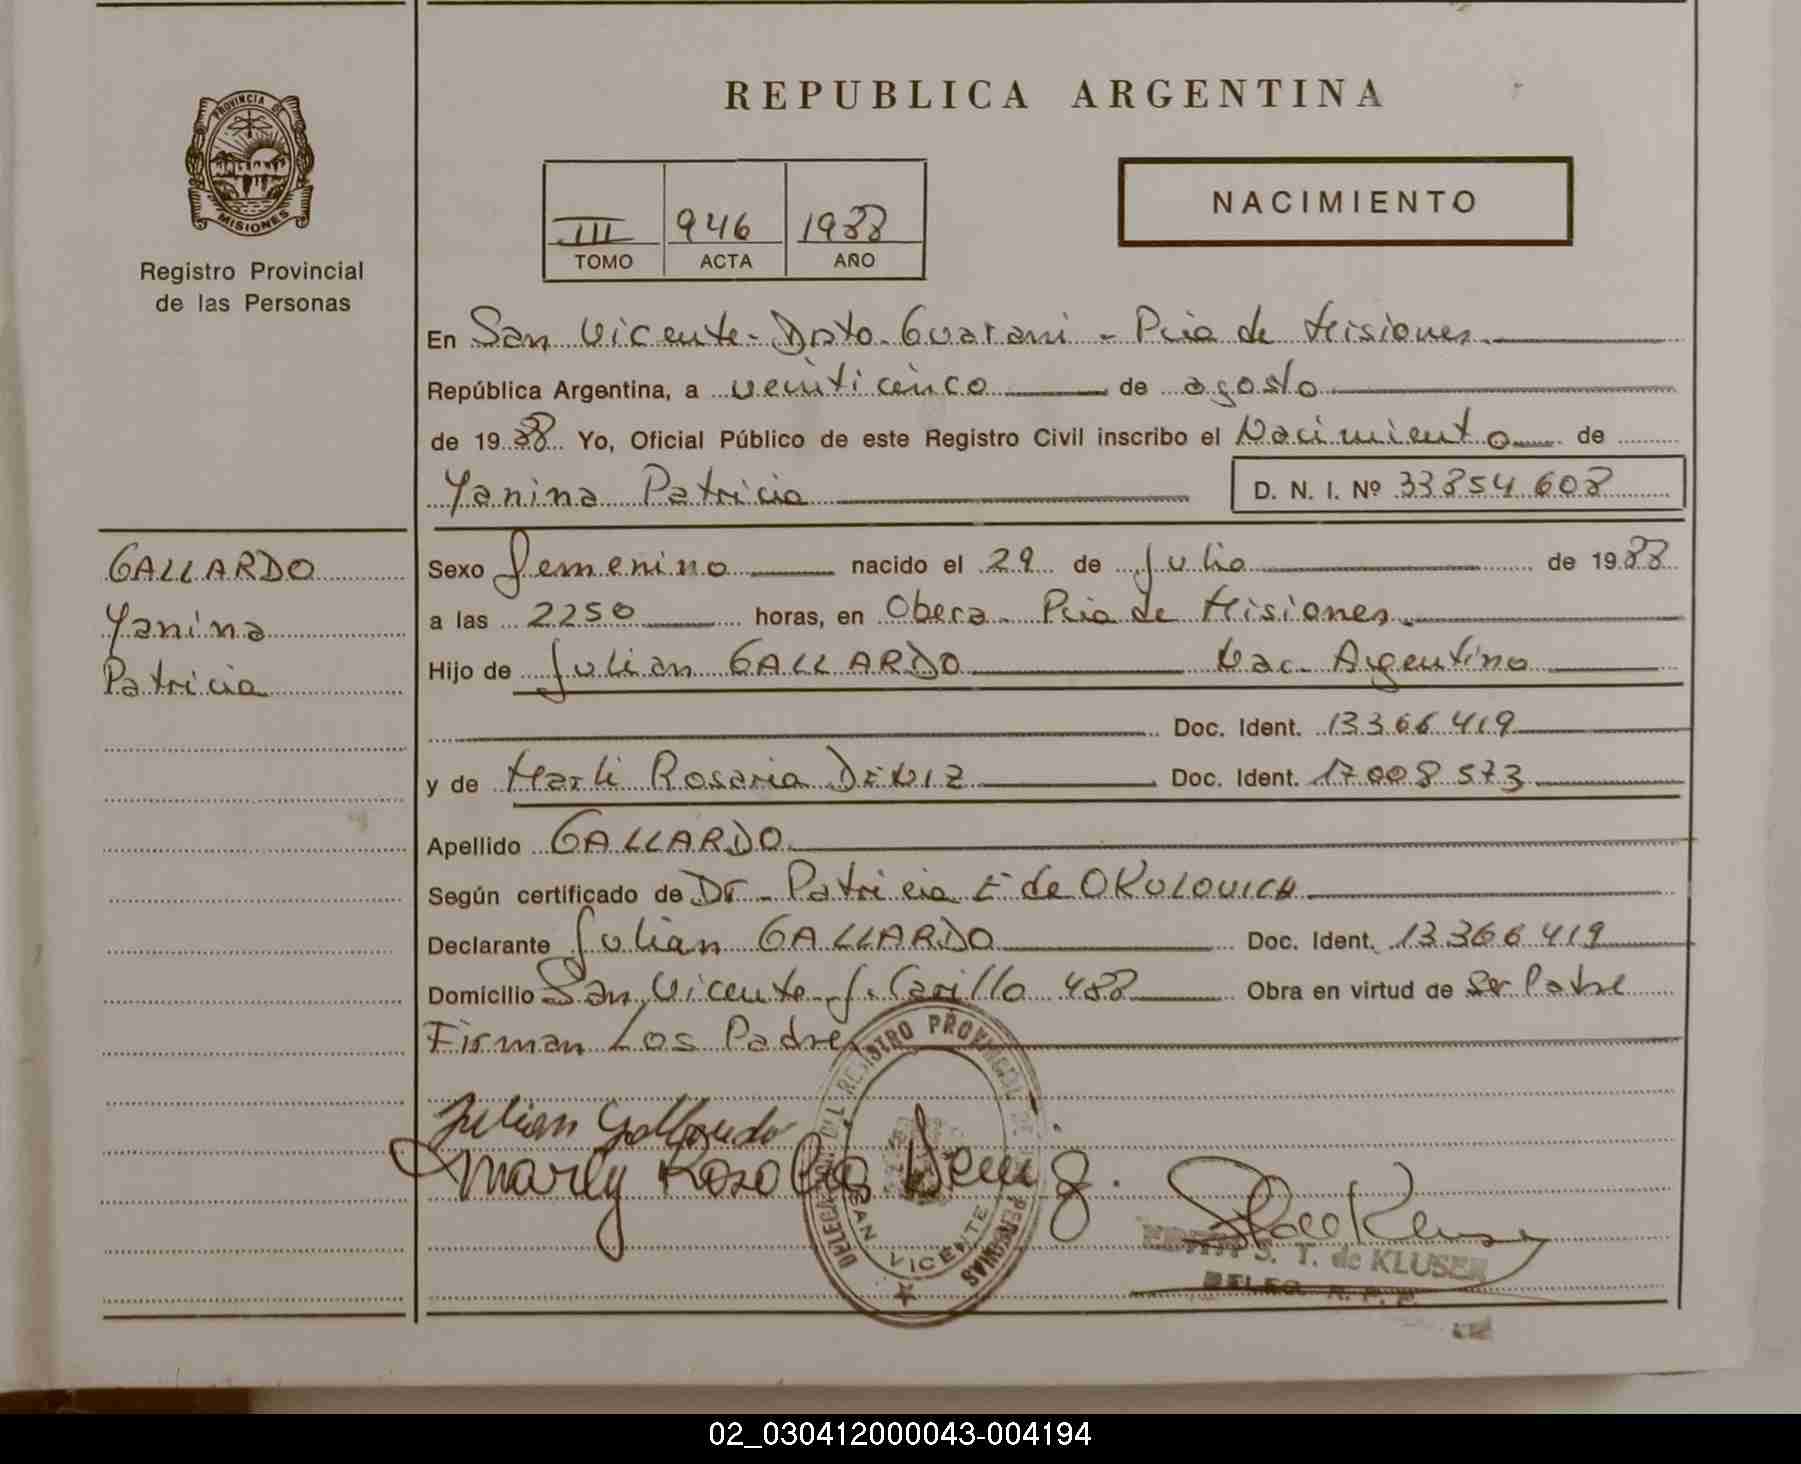 PROVINCIA DE
MISIONES
Registro Provincial
de las Personas
REPUBLICA ARGENTINA
III 946 1988
TOMO ACTA AÑO
NACIMIENTO
En San Vicente - Dpto. Guarani - Pcia de Misiones
República Argentina, a veinticinco de agosto
de 1988 Yo, Oficial Público de este Registro Civil inscribo el Nacimiento de
Yanina Patricia D. N. I. Nº 33854608
GALLARDO
Yanina
Patricia
Sexo femenino nacido el 29 de Julio de 1988
a las 2250 horas, en Obera - Pcia de Misiones
Hijo de Julian GALLARDO Nac. Argentino
Doc. Ident. 13366419
y de Marli Rosaria DENIZ Doc. Ident. 17008573
Apellido GALLARDO
Según certificado de Dr - Patricia E de OKULOVICH
Declarante Julian GALLARDO Doc. Ident. 13366419
Domicilio San Vicente J. Carillo 488 Obra en virtud de Ser Padre
Firman Los Padres
Julian Gallardo
Marly Rosa Deniz.
DELEGACION DEL REGISTRO PROVINCIAL DE PERSONAS
SAN VICENTE
S. T. de KLUSER
DELEG. R. P. P.
02_030412000043-004194